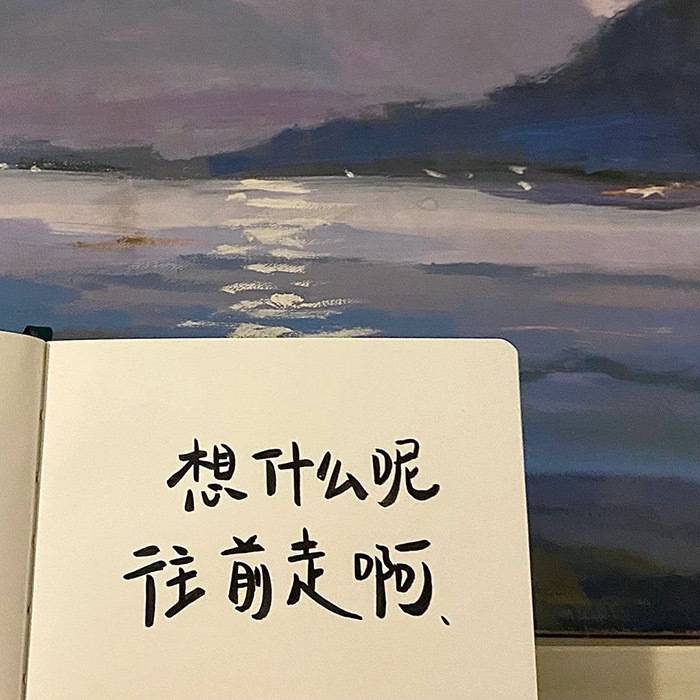 想什么呢
往前走啊、